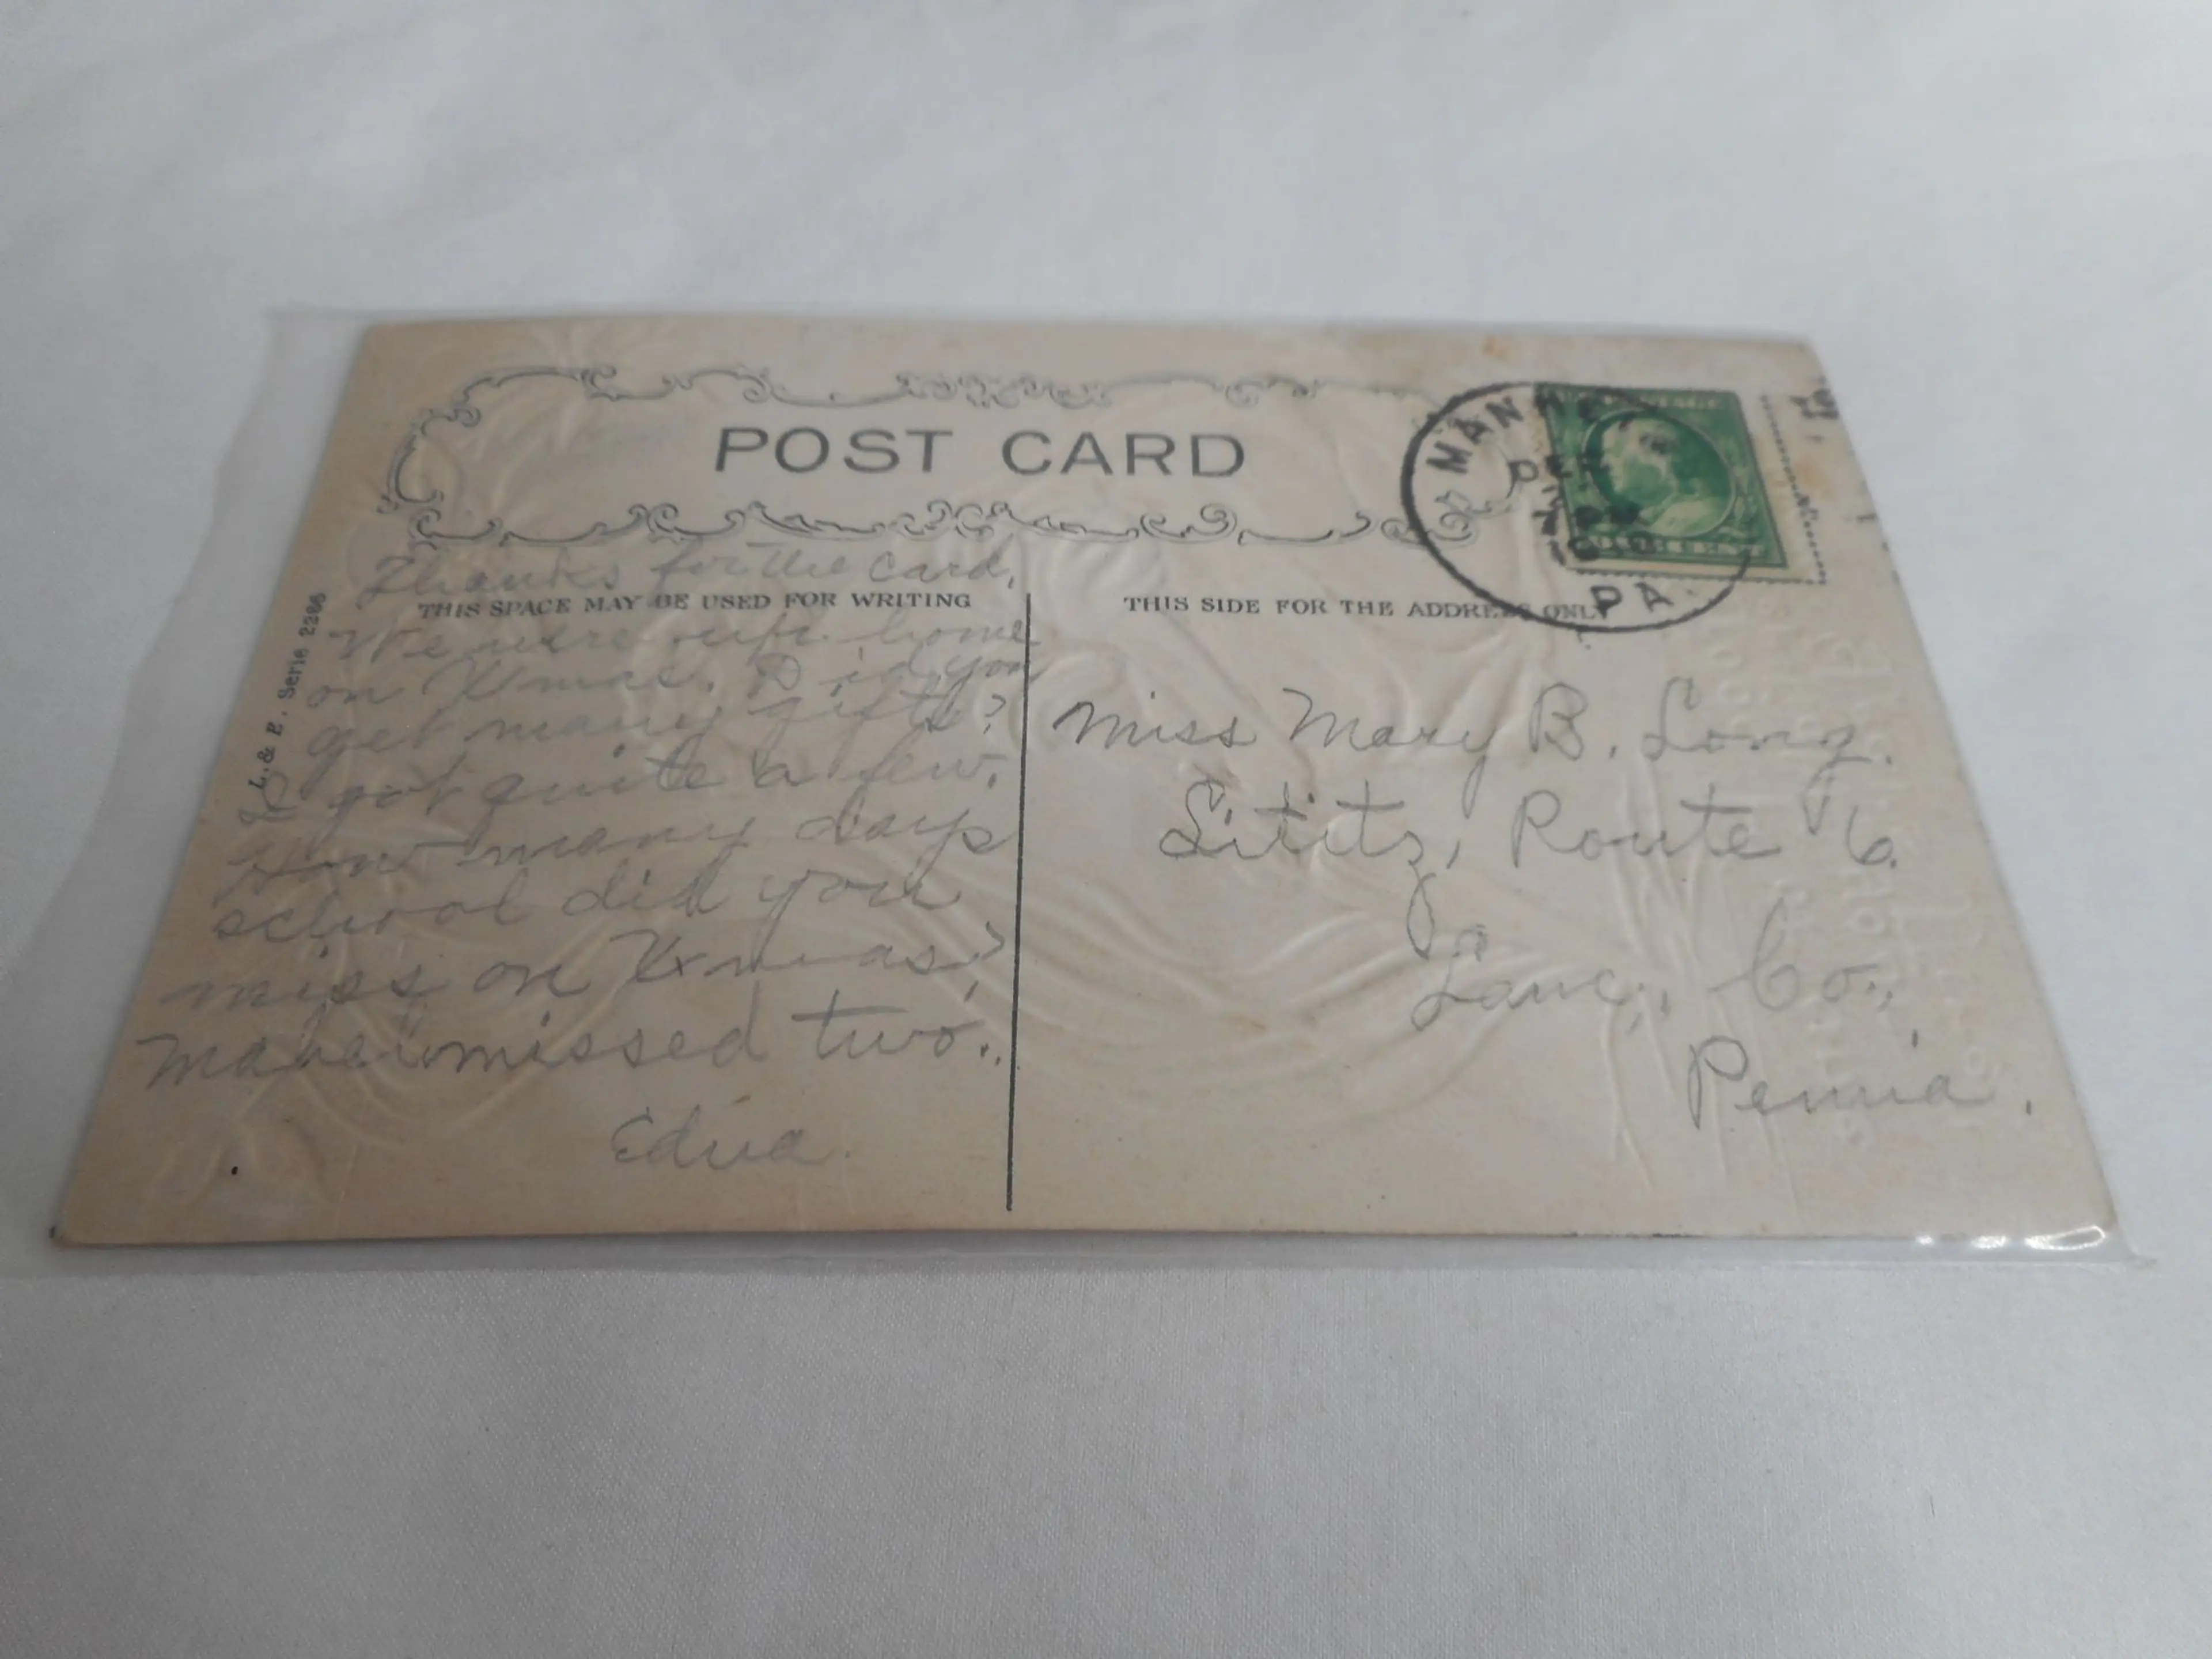 POST CARD
THIS SPACE MAY BE USED FOR WRITING
THIS SIDE FOR THE ADDRESS ONLY
L. & E. Serie 2286
MANHEIM
DEC
PA.
ONE CENT
Thanks for the card.
We were home
on Xmas. Did you
get many gifts?
I got quite a few.
How many days
school did you
miss on Xmas?
Mabel missed two.
Edna.
Miss Mary B. Long.
Lititz, Route 6.
Lanc., Co.,
Penn'a.